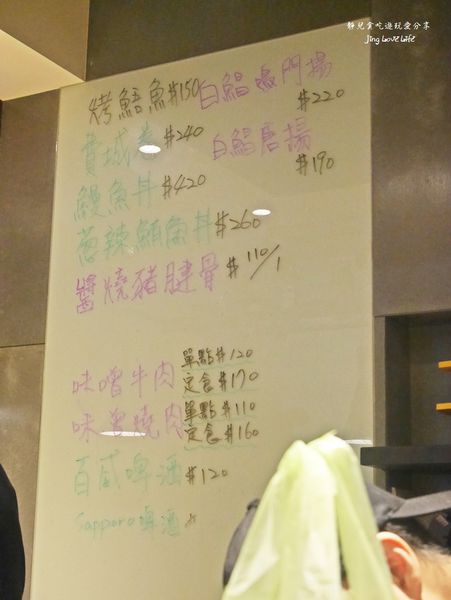 靜兒貪吃遊玩愛分享
Jing Love Life
烤鯖魚 #150
白鯧鳴門揚
#220
費城卷 #240
白鯧唐揚
#190
鰻魚丼 #420
蔥辣鮪魚丼 #260
醬燒豬腱骨 #110/1
味噌牛肉 單點 #120
定食 #170
味噌燒肉 單點 #110
定食 #160
百威啤酒 #120
Sapporo啤酒